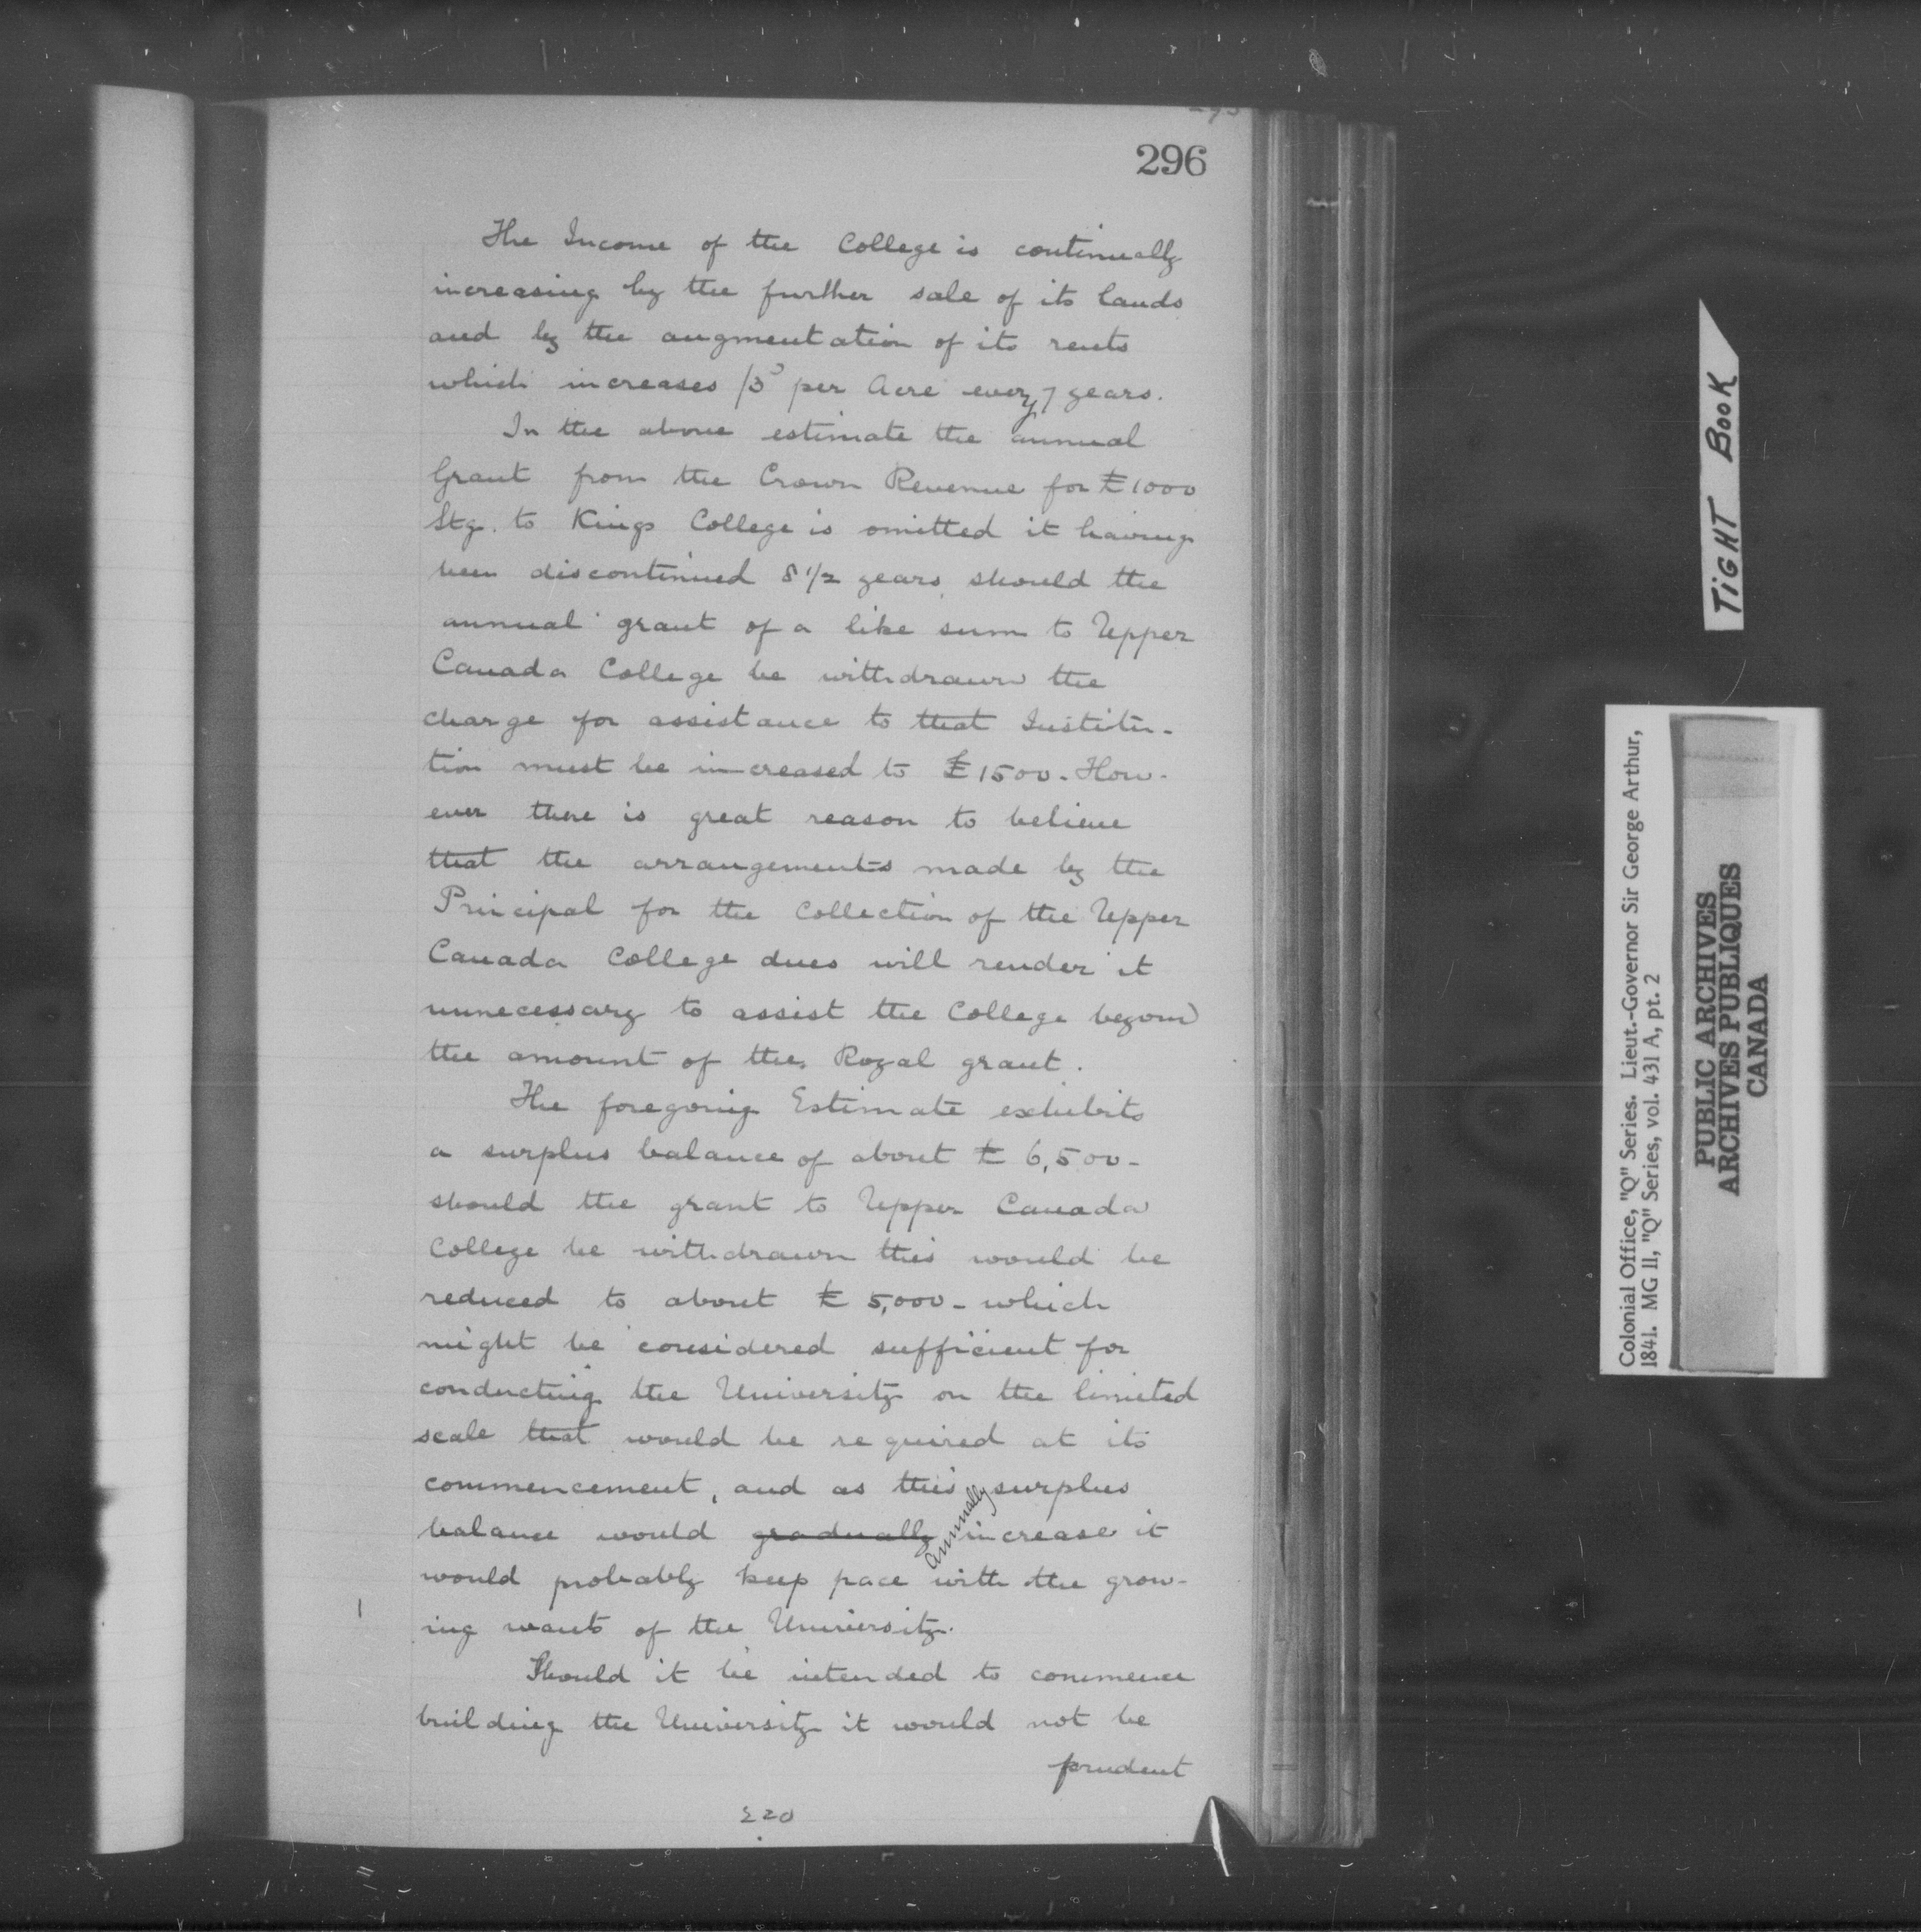 296
The Income of the College is continually
increasing by the further sale of its lands
and by the augmentation of its rents
which increases /3ᵈ per Acre every 7 years.
In the above estimate the annual
Grant from the Crown Revenue for £1000
Stg. to Kings College is omitted it having
been discontinued 8 1/2 years, should the
annual grant of a like sum to Upper
Canada College be withdrawn the
charge for assistance to that Institu-
tion must be increased to £1500. How-
ever there is great reason to believe
that the arrangements made by the
Principal for the Collection of the Upper
Canada College dues will render it
unnecessary to assist the College beyond
the amount of the Royal grant.
The foregoing Estimate exhibits
a surplus balance of about £ 6,500-
should the grant to Upper Canada
College be withdrawn this would be
reduced to about £ 5,000- which
might be considered sufficient for
conducting the University on the limited
scale that would be required at its
commencement, and as this surplus
balance would gradually annually increase it
would probably keep pace with the grow-
ing wants of the University.
Should it be intended to commence
building the University it would not be
prudent
220
TIGHT BOOK
Colonial Office, "Q" Series. Lieut.-Governor Sir George Arthur,
1841. MG 11, "Q" Series, vol. 431 A, pt. 2
PUBLIC ARCHIVES
ARCHIVES PUBLIQUES
CANADA